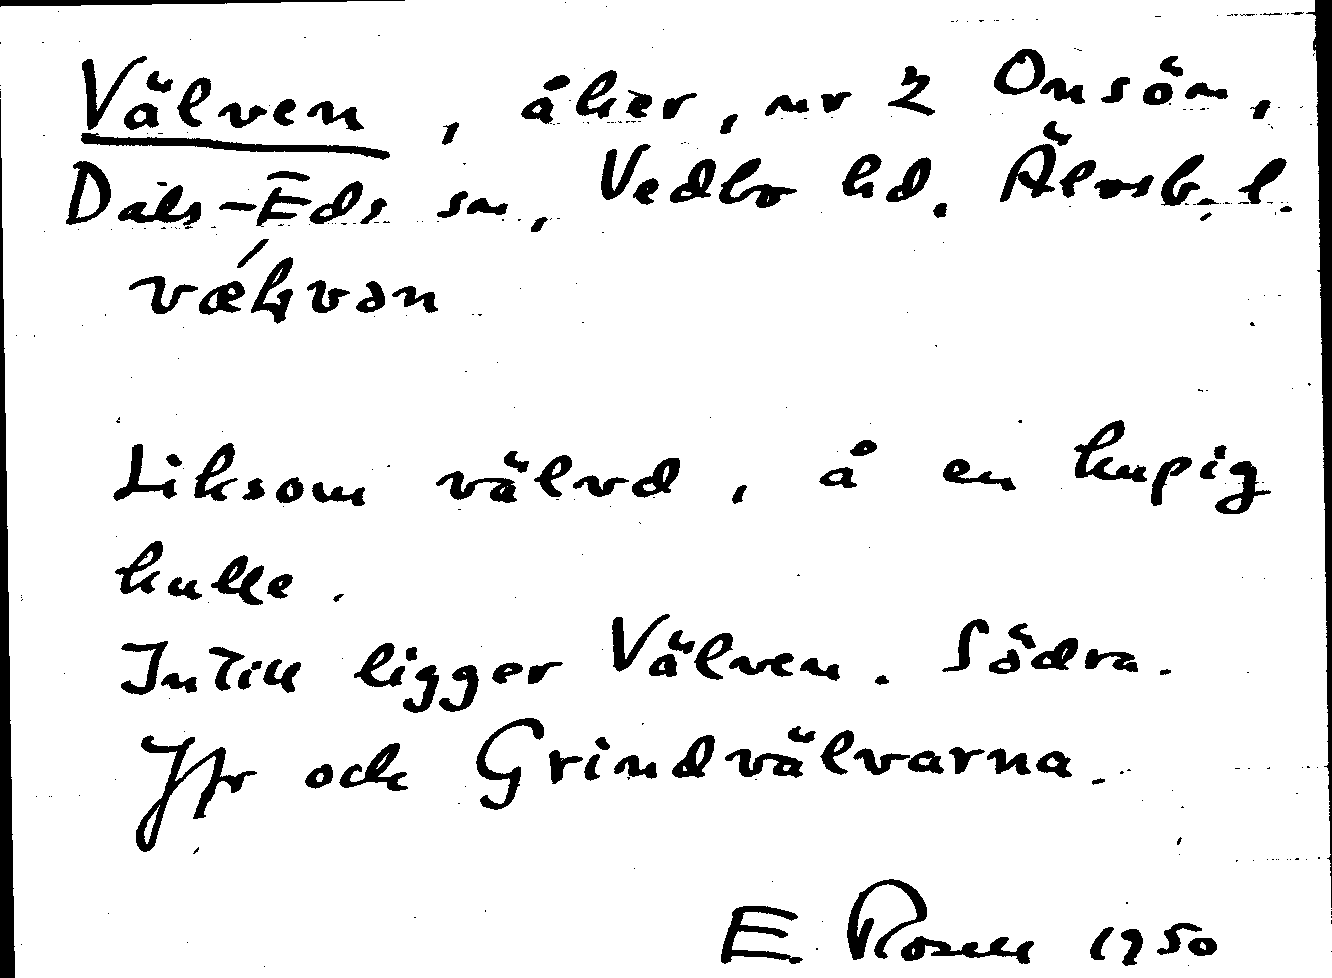 Välven, åker, nr 2 Onsön,
Dals-Eds sn, Vedbo hd. Älvsb. l.
Liksom välvd, å en kupig
kulle.
Intill ligger Välven. Södra.
Jfr och Grindvälvarna.
E. Rosell 1950